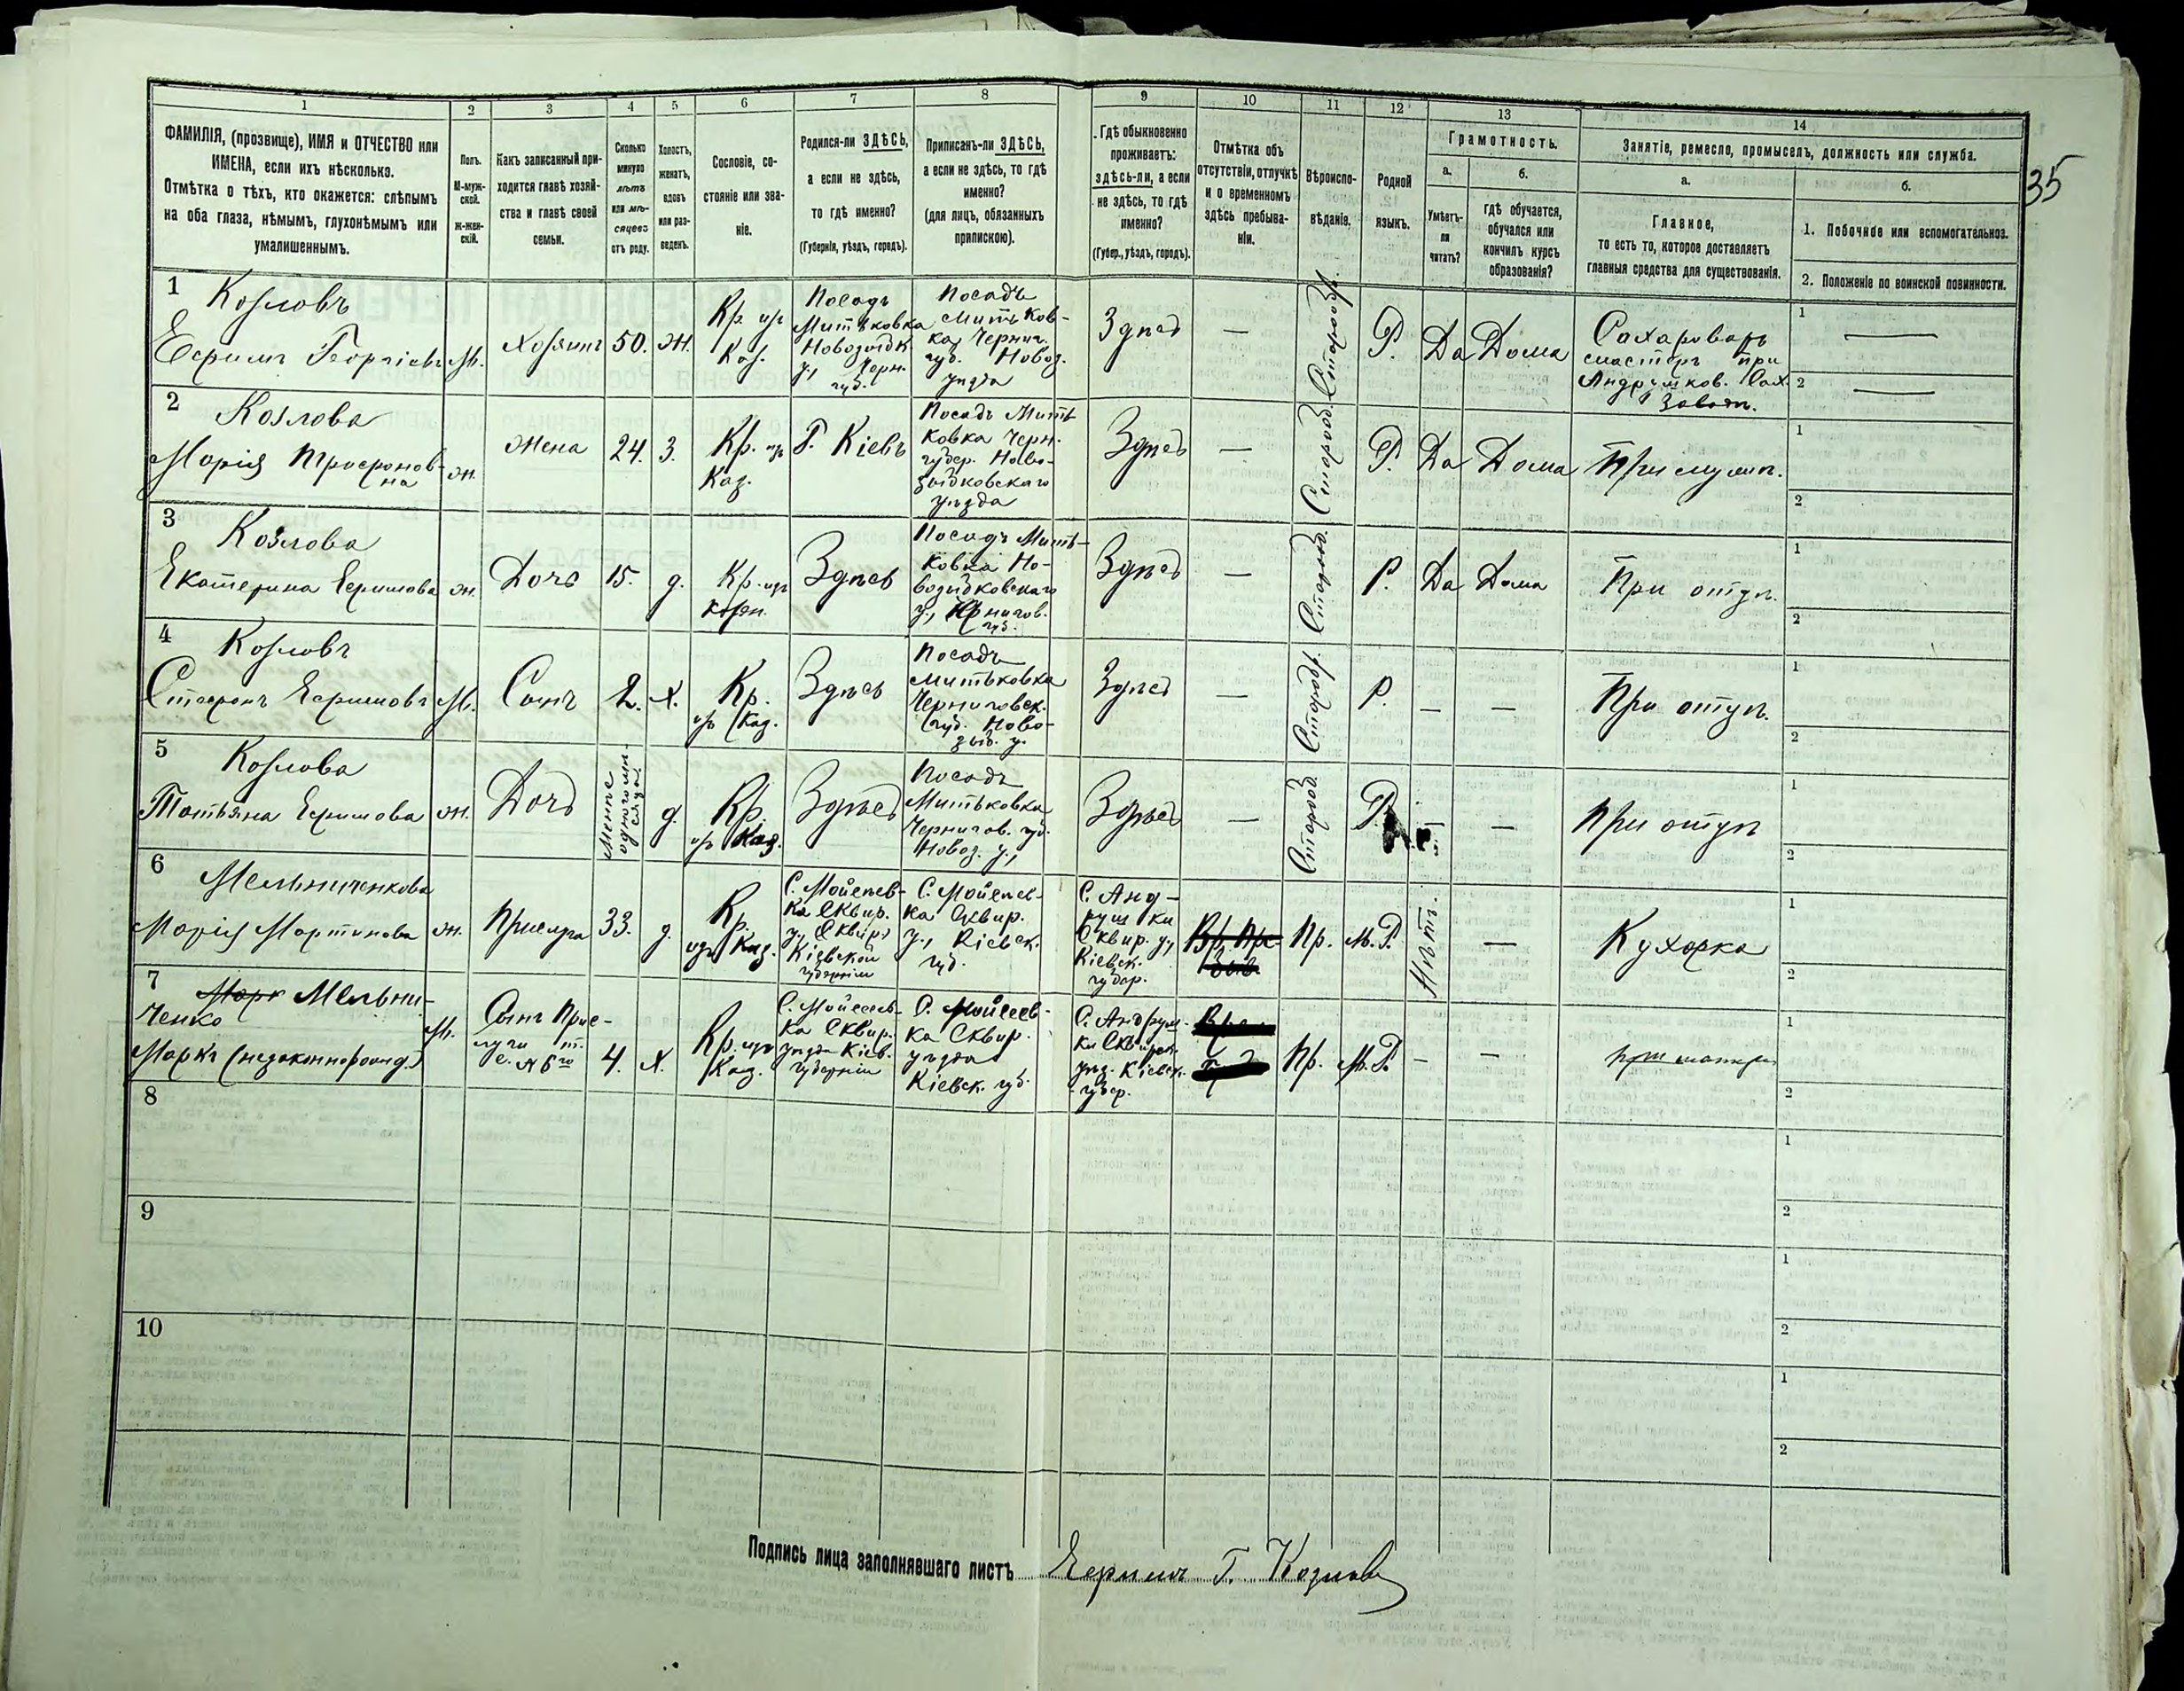 35
1 2 3 4 5 6 7 8 9 10 11 12 13 14
ФАМИЛІЯ, (прозвище), ИМЯ и ОТЧЕСТВО или
ИМЕНА, если ихъ нѣсколько.
Отмѣтка о тѣхъ, кто окажется: слѣпымъ
на оба глаза, нѣмымъ, глухонѣмымъ или
умалишеннымъ.
Полъ.
М-муж-
ской.
Ж-жен-
скій.
Какъ записанный при-
ходится главѣ хозяй-
ства и главѣ своей
семьи.
Сколько
минуло
лѣтъ
или мѣ-
сяцевъ
отъ роду.
Холостъ,
женатъ,
вдовъ
или раз-
веденъ.
Сословіе, со-
стояніе или зва-
ніе.
Родился-ли ЗДѢСЬ,
а если не здѣсь,
то гдѣ именно?
(Губернія, уѣздъ, городъ).
Приписанъ-ли ЗДѢСЬ,
а если не здѣсь, то гдѣ
именно?
(для лицъ, обязанныхъ
припискою).
Гдѣ обыкновенно
проживаетъ:
здѣсь-ли, а если
не здѣсь, то гдѣ
именно?
(Губер., уѣздъ, городъ).
Отмѣтка объ
отсутствіи, отлучкѣ
и о временномъ
здѣсь пребыва-
ніи.
Вѣроиспо-
вѣданіе.
Родной
языкъ.
Грамотность.
а.
Умѣетъ-
ли
читать?
б.
гдѣ обучается,
обучался или
кончилъ курсъ
образованія?
Занятіе, ремесло, промыселъ, должность или служба.
а.
Главное,
то есть то, которое доставляетъ
главныя средства для существованія.
б.
1. Побочное или вспомогательное.
2. Положеніе по воинской повинности.
1
Козловъ
Ефримъ Георгіевъ
М.
Хозяинъ
50.
Ж.
Кр. изъ
Каз.
Посадъ
Митьковка
Новозыбк.
у., Черн.
губ.
Посадъ
Митьков-
ка Черниг.
губ. Новоз.
уѣзда
Здѣсь
—
Старообр.
Р.
Да
Дома
Сахароваръ
мастеръ при
Андрушков. Сах.
Заводѣ.
1 —
2 —
2
Козлова
Марія Трофимов-
на
Ж.
Жена
24.
З.
Кр. изъ
Каз.
Г. Кіевъ
Посадъ Мить-
ковка Черн.
губер. Ново-
зыбковскаго
уѣзда
Здѣсь
—
Старообр.
Р.
Да
Дома
При мужѣ.
1
2
3
Козлова
Екатерина Ефимова
Ж.
Дочь
15.
д.
Кр. изъ
Здѣсь
Посадъ Мить-
ковка Но-
возыбковскаго
у., Чернигов.
губ.
Здѣсь
—
Старообр.
Р.
Да
Дома
При отцѣ.
1
2
4
Козловъ
Стефанъ Ефимовъ
М.
Сынъ
2.
Х.
Кр.
изъ Каз.
Здѣсь
Посадъ
Митьковка
Черниговск.
губ. Ново-
зыб. у.
Здѣсь
—
Старообр.
Р.
—
—
При отцѣ.
1
2
5
Козлова
Татьяна Ефимова
Ж.
Дочь
Менѣе
одного мѣ-
сяца.
д.
Кр.
изъ Каз.
Здѣсь
Посадъ
Митьковка
Чернигов. губ.
Новоз. у.,
Здѣсь
—
Старообр.
Р.
—
—
При отцѣ
1
2
6
Мельниченкова
Марія Мартинова
Ж.
Прислуга
33.
д.
Кр.
изъ Каз.
С. Мойсеев-
ка Сквир.
у., Сквир.
Кіевской
губерніи
С. Мойсеев-
ка Сквир.
у., Кіевск.
губ.
С. Анд-
рушки
Сквир. у.,
Кіевск.
губер.
Пр.
М. Р.
Нѣтъ.
—
Кухарка
1
2
7
Марк Мельни-
ченко
Маркъ (незаконнорожд.)
М.
Сынъ Прис-
луги т.
е. № 6го
4.
Х.
Кр. изъ
Каз.
С. Мойсеев-
ка Сквир.
уѣзда Кіев.
губерніи
С. Мойсеев-
ка Сквир.
уѣзда
Кіевск. губ.
С. Андруш-
ки Сквирск.
уѣз. Кіевск.
губер.
Пр.
М. Р.
—
—
при матери
1
2
8
1
2
9
1
2
10
1
2
Подпись лица заполнявшаго листъ Ефимъ Г. Козловъ